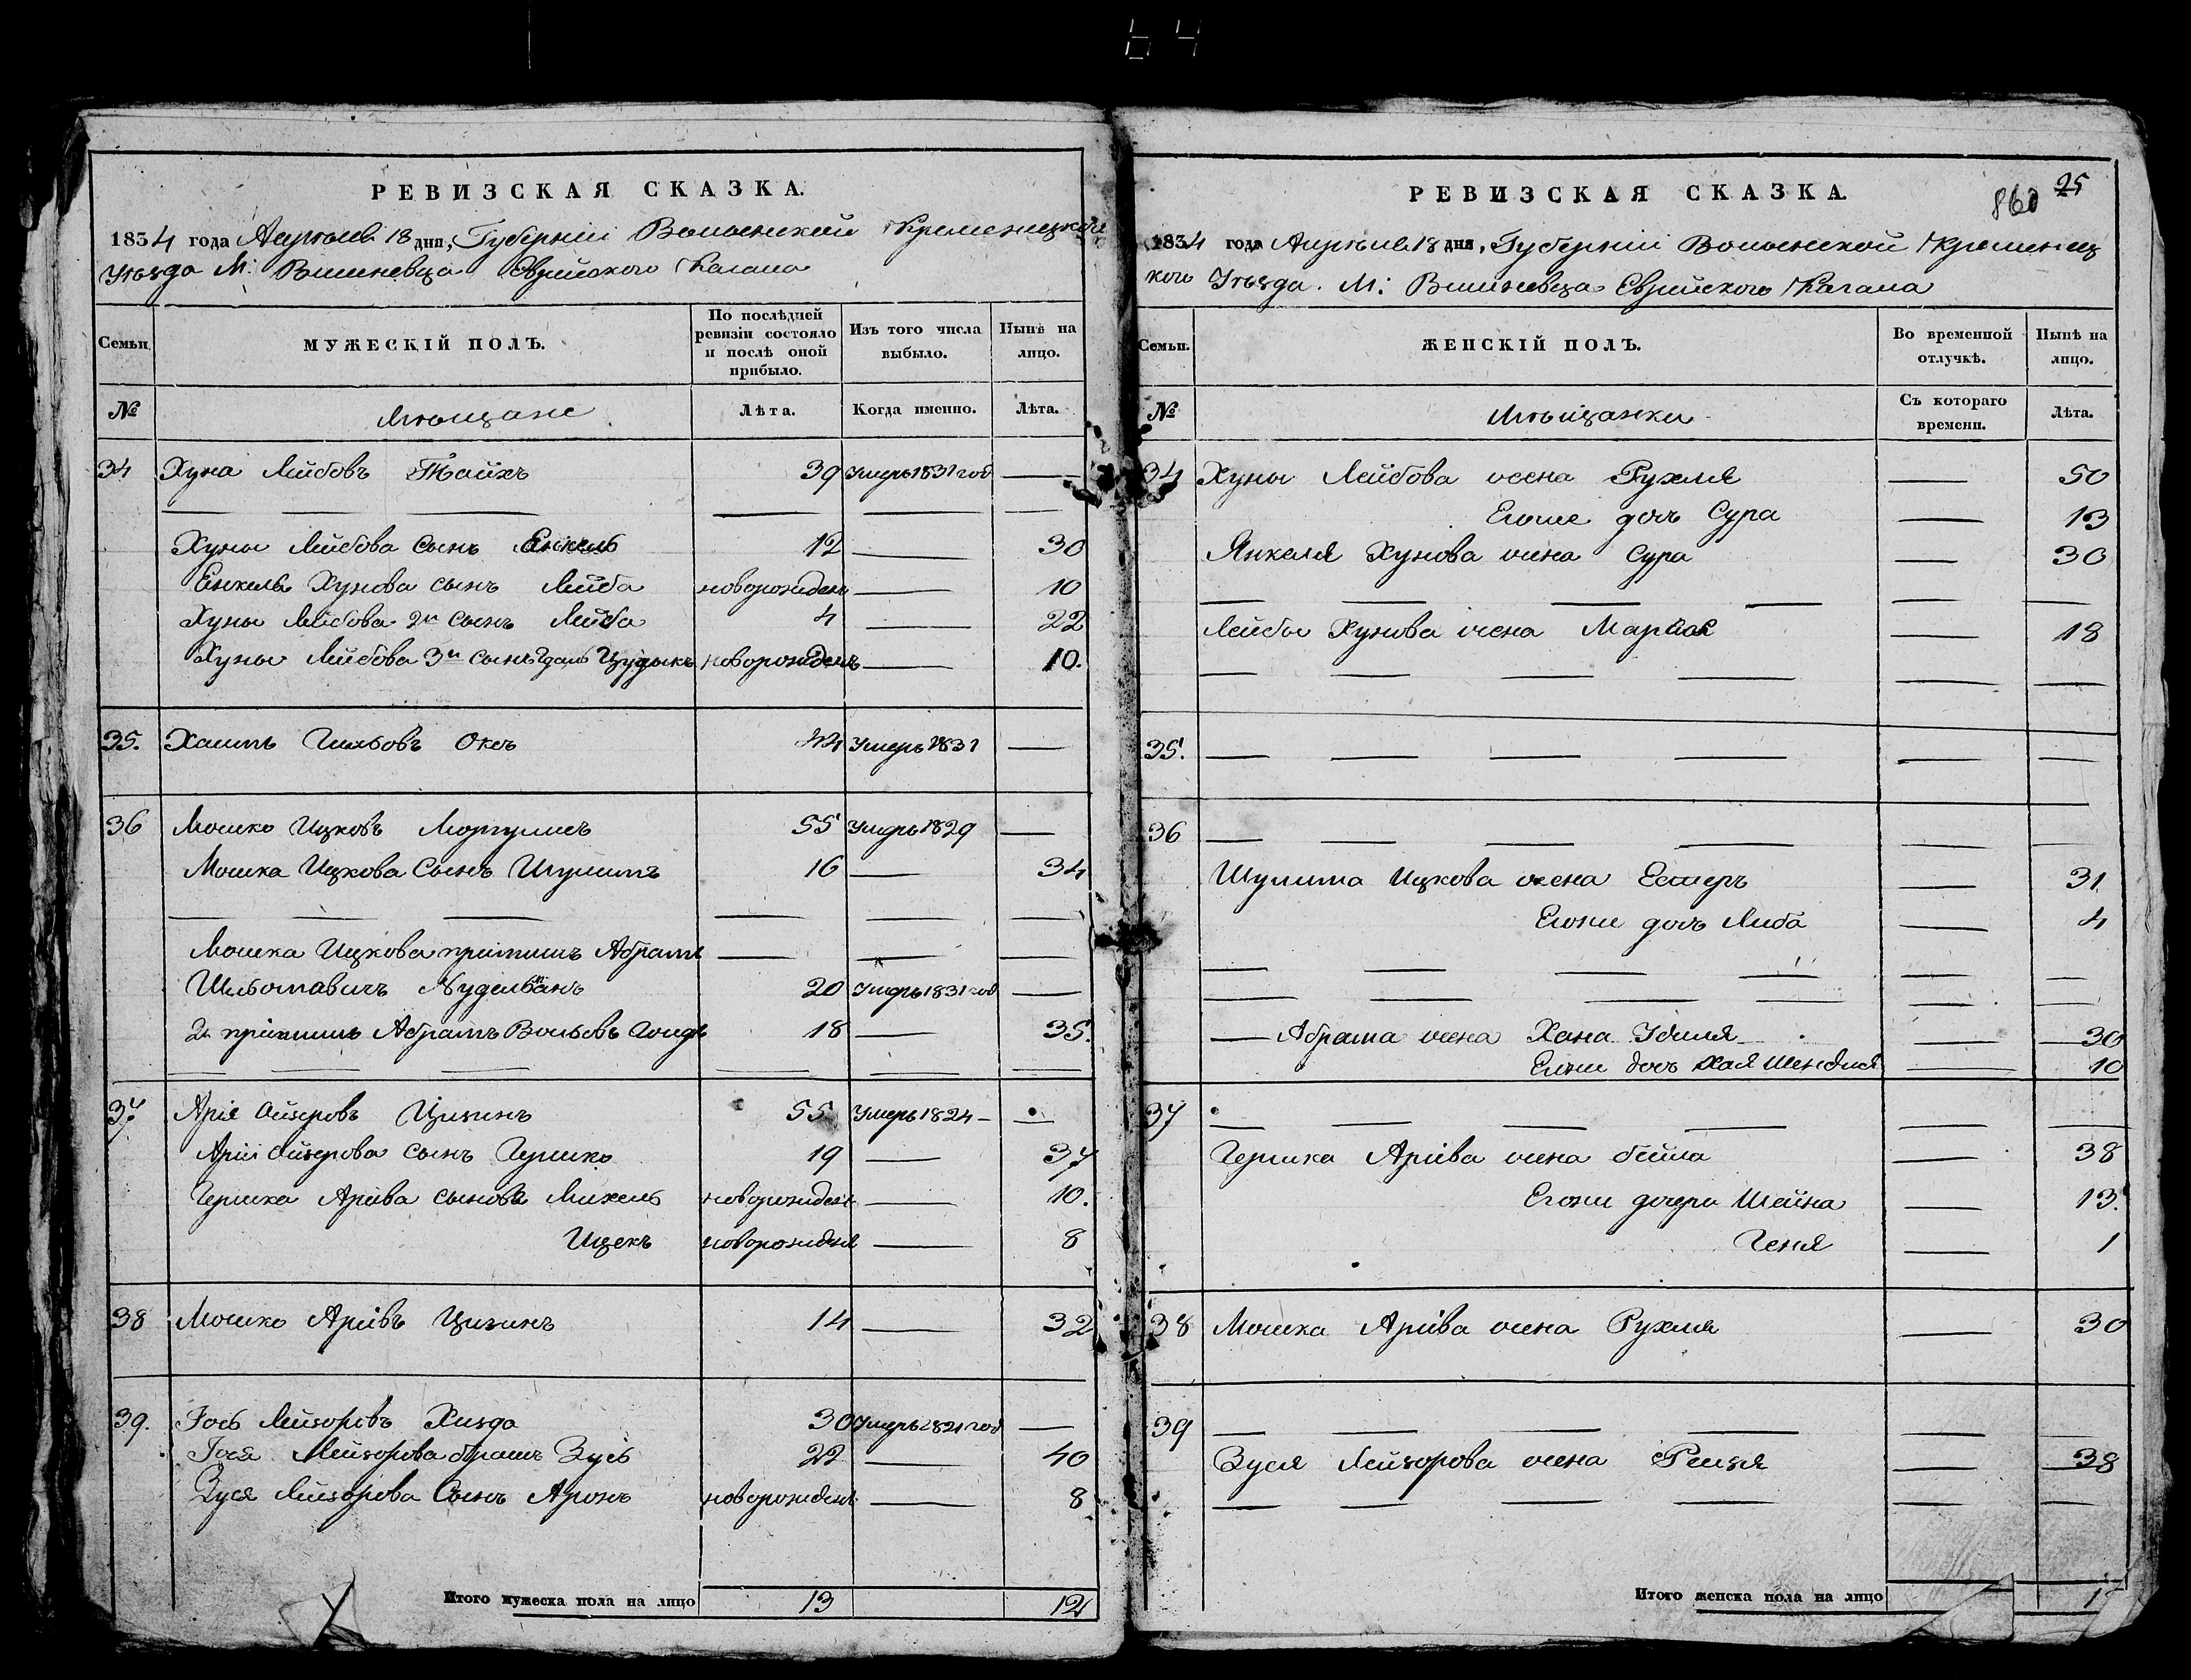 64
РЕВИЗСКАЯ СКАЗКА.
1834 года Апрѣля 18 дня, Губерніи Волынской Кременецкого
Уѣзда М: Вишневца Еврейского Кагала
Семьи. МУЖЕСКІЙ ПОЛЪ. По послѣдней ревизіи состояло и послѣ оной прибыло. Изъ того числа выбыло. Нынѣ на лицо.
№ Мѣщане Лѣта. Когда именно. Лѣта.
34 Хуна Лейбовъ Тайхъ 39 Умеръ 1831 год —
Хуны Лейбова сынъ Енкель 12 — 30
Енкеля Хунова сынъ Лейба новорожденъ — 10
Хуны Лейбова 2й сынъ Лейба 4 — 22
Хуны Лейбова 3й сынъ Цудыкъ новорожденъ — 10.
35. Хаимъ Оксъ 44 Умеръ 1831 —
36 Мошко Ицковъ Моргулисъ 55 Умеръ 1829 —
Мошка Ицкова Сынъ Шулимъ 16 — 34
Мошка Ицкова пріимышъ Абрамъ — — —
20 Умеръ 1831 год —
2й пріимышъ Абрамъ Вольовъ 18 — 35.
37. Арія Айзеровъ Цизинъ 55 Умеръ 1824 — —
Арія Айзерова сынъ Гершко 19 — 37
Гершка Аріева сыновья Михель новорожденъ — 10.
Ицекъ новорожденъ — 8
38 Мошко Аріевъ Цизинъ 14 — 32
39. Іось Лейзоровъ Хизда 30 Умеръ 1821 год —
Іося Лейзорова братъ Зусь 22 — 40
Зуся Лейзорова Сынъ Аронъ новорожденъ — 8
Итого мужеска пола на лицо 13 12
РЕВИЗСКАЯ СКАЗКА. 860 25
1834 года Апрѣля 18 дня, Губерніи Волынской Кременец
кого Уѣзда. М: Вишневца Еврейского Кагала
Семьи. ЖЕНСКІЙ ПОЛЪ. Во временной отлучкѣ. Нынѣ на лицо.
№ Мѣщанки Съ котораго времени. Лѣта.
34 Хуны Лейбова жена Рухля — 50
Егоже дочь Сура — 13
Янкеля Хунова жена Сура — 30
Лейбы Хунова жена Марьяс — 18
35. — — — — — —
36 — — — — — —
Шулима Ицкова жена Естеръ — 31
Егоже дочь Либа — 4
— Абрама жена Хана — 30
Егоже дочь Хая Шендля — 10
37 — — — — — —
Гершка Аріева жена бейла — 38
Егоже дочери Шейна — 13.
Геня — 1
38 Мошка Аріева жена Рухля — 30
39 — — — — — —
Зуся Лейзорова жена Рейзя — 38
Итого женска пола на лицо